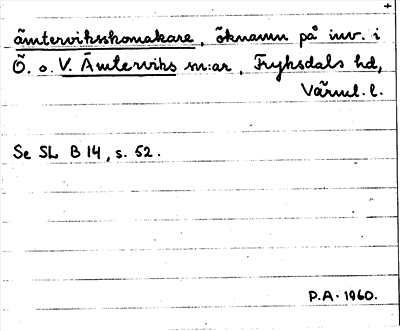 ämtervikskomakare, öknamn på inv. i
Ö. o. V. Ämterviks m:ar, Fryksdals hd,
Värml. l.
Se SL B 14, s. 52.
P.A. 1960.